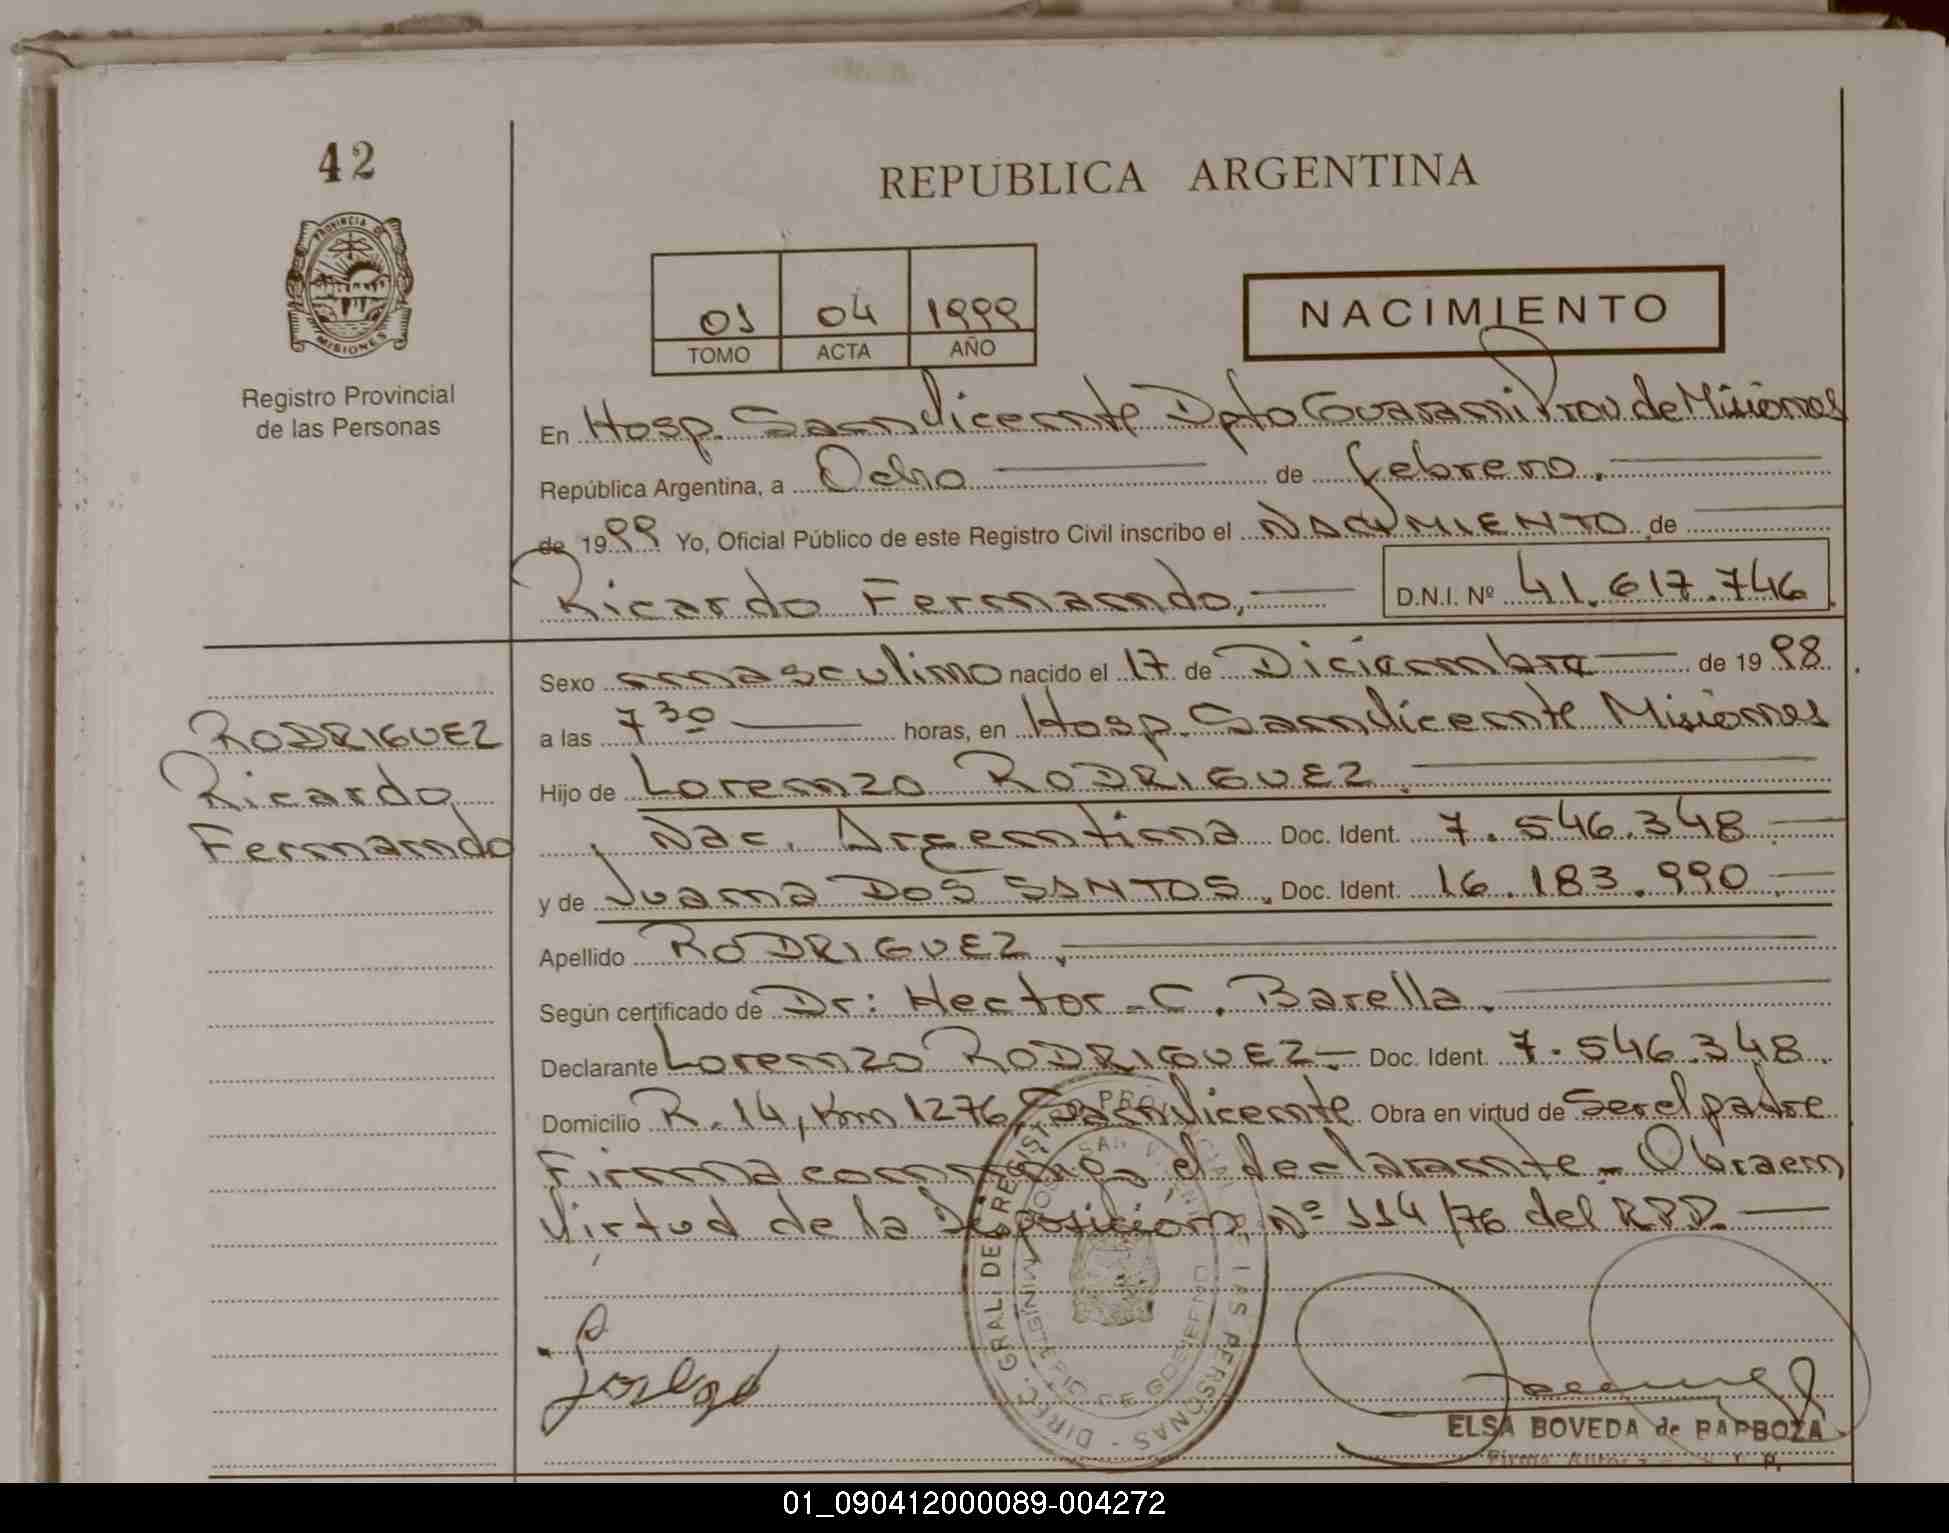 42
REPUBLICA ARGENTINA
PROVINCIA DE
MISIONES
Registro Provincial
de las Personas
01 04 1999
TOMO ACTA AÑO
NACIMIENTO
En Hosp. San Vicente Dpto Guarani Prov. de Misiones
República Argentina, a Ocho de febrero.
de 1999 Yo, Oficial Público de este Registro Civil inscribo el NACIMIENTO de
Ricardo Fernando, D.N.I. Nº 41.617.746.
Sexo masculino nacido el 17 de Diciembre de 1998
a las 7 30 horas, en Hosp. San Vicente Misiones
Hijo de Lorenzo RODRIGUEZ.
Nac. Argentina Doc. Ident. 7.546.348
y de Juana DOS SANTOS, Doc. Ident. 16.183.990
Apellido RODRIGUEZ,
Según certificado de Dr: Hector C. Barella.
Declarante Lorenzo RODRIGUEZ- Doc. Ident. 7.546.348.
Domicilio R. 14, Km 1276, San Vicente Obra en virtud de Ser el padre
Firma conmigo, el declarante- Obra en
Virtud de la Disposición, Nº 114/76 del R.P.P.
RODRIGUEZ
Ricardo
Fernando
DIREC. GRAL. DE REGISTRO PROVINCIAL DE LAS PERSONAS
MINISTERIO DE GOBIERNO
ELSA BOVEDA de BARBOZA
01_090412000089-004272